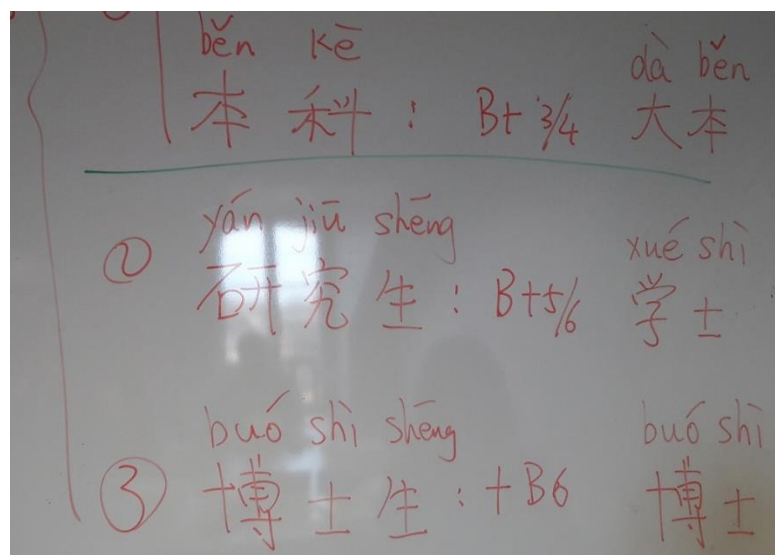 běn kē dà běn
本科: B+3/4 大本
yán jiū shēng xué shì
② 研究生: B+5/6 学士
buó shì shēng buó shì
③ 博士生: +B6 博士